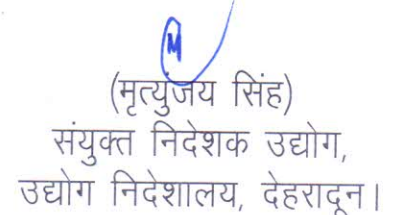 (मृत्युंजय सिंह)
संयुक्त निदेशक उद्योग,
उद्योग निदेशालय, देहरादून।